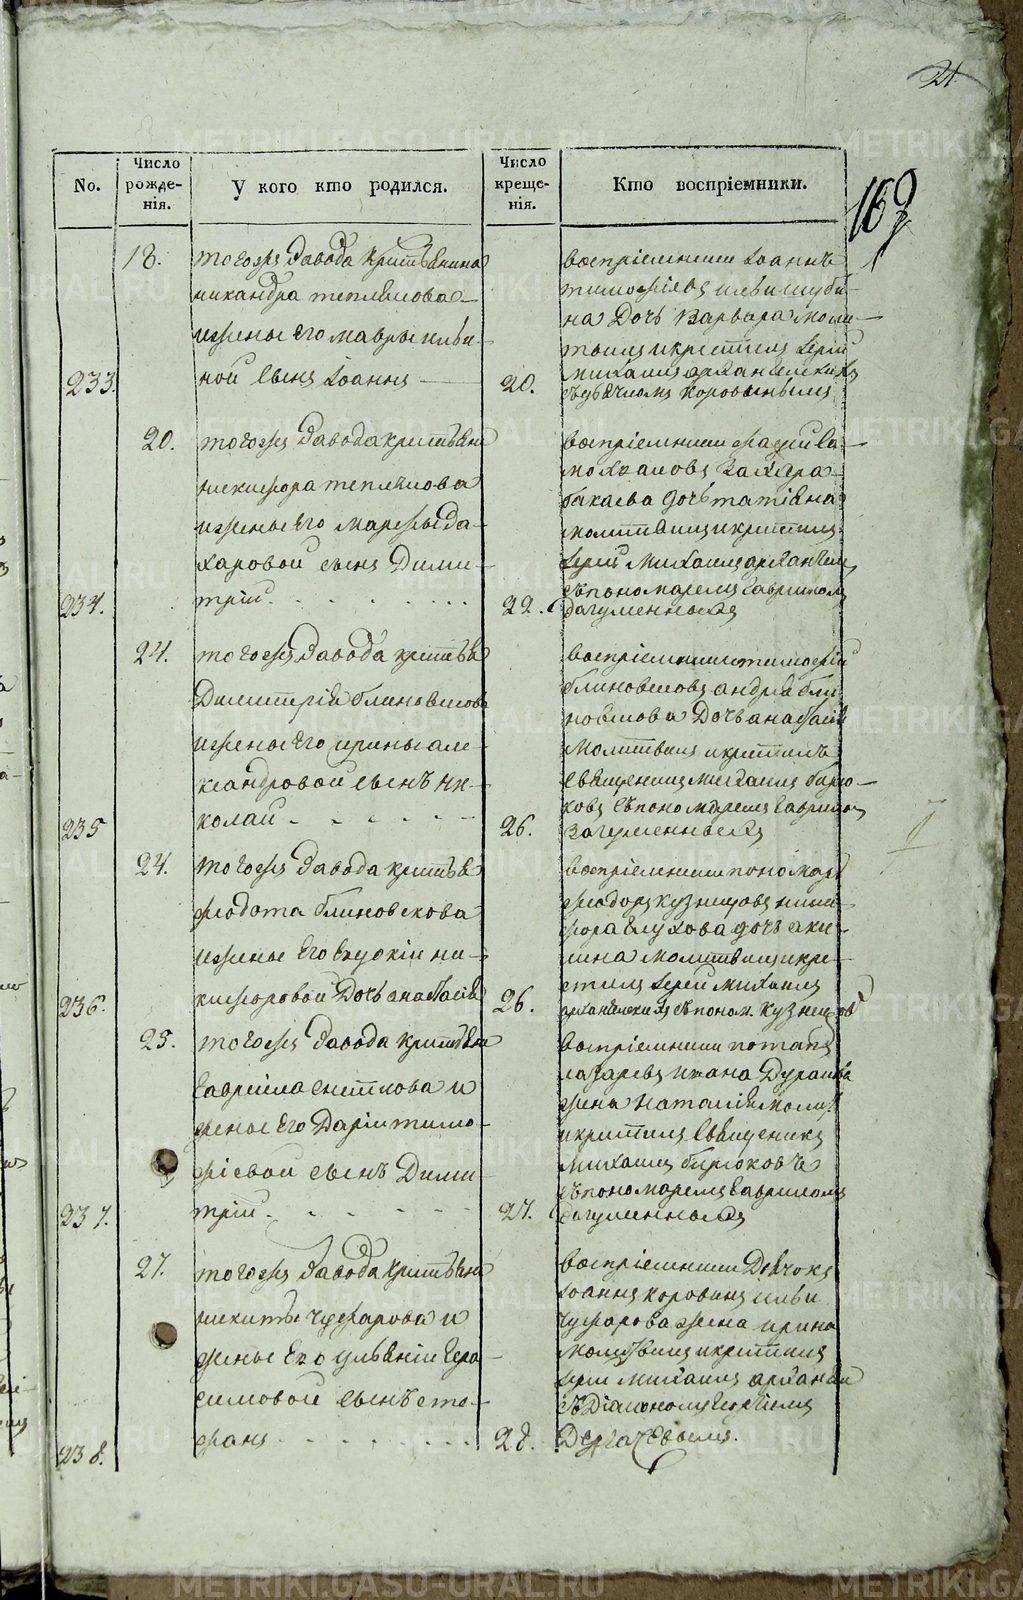 21
169
No.
Число рожденія.
У кого кто родился.
Число крещенія.
Кто воспріемники.
18.
тогожъ Завода крестьянина
никандра теплякова
ижены его мавры ильи-
233.
ной сынъ Іоаннъ
воспріемники Іоаннъ
на Дочь Варвара моли-
твилъ и крестилъ Іерей
михаилъ архангельскихъ
20.
коровинымъ
20.
тогожъ Завода крестьяни
никифора теплякова
ижены Его марфы За-
харовой сынъ Дими-
234.
трій
воспріемники
дочь татіана
молитвилъ и крестилъ
Іерей Михаилъ арханге
съ пономаремъ Гаврилом
22.
Загуменныхъ
24.
тогожъ Завода крестья
Димитрія блиновскова
ижены Его ирины але-
ксандровой сынъ ни-
235
колай
воспріемники тимофей
блиновсковъ андрея бли
новскова Дочь анастасія
молитвилъ и крестилъ
священникъ михаилъ бирю-
ковъ съ пономаремъ Гаврилом
26.
Загуменныхъ
24.
тогожъ Завода крестья
федота блиновскова
ижены Его Евдокіи ни-
236.
кифоровой Дочь анастасія
воспріемники пономарь
феодоръ кузнецовъ ники-
фора Глухова дочь аки-
лина молитвилъ и кре-
стилъ Іерей михаилъ
26.
архангельскихъ съ поном. Кузнецов
25.
тогожъ Завода крестьяни
Гавріила снеткова и
жены Его Даріи тимо-
фіевой сынъ Дими-
237.
трій
воспріемники потапъ
лазаревъ
жена наталія молит
и крестилъ священникъ
михаилъ бирюковъ
съ пономаремъ Гавриломъ
27.
Загуменныхъ
27.
тогожъ Завода крестьяни
никиты чуфарова и
жены Его уліяніи Гера-
симовой сынъ сте-
238.
фанъ
воспріемники Дьячокъ
Іоаннъ коровинъ ильи
чуфарова жена ирина
молитвилъ и крестилъ
Іерей михаилъ арханге
съ Діакономъ Георгіемъ
28.
METRIKI.GASO-URAL.RU